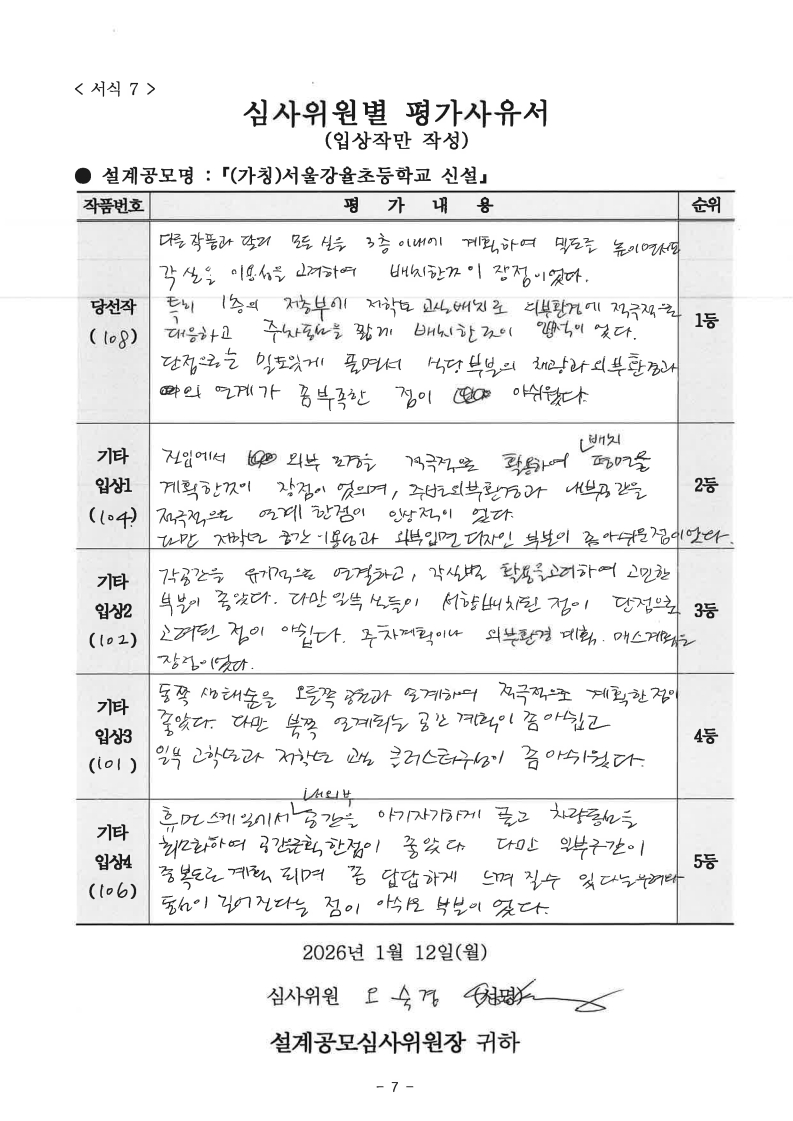 < 서식 7 >
심사위원별 평가사유서
(입상작만 작성)
● 설계공모명 : 『(가칭)서울강율초등학교 신설』
작품번호 평 가 내 용 순위
당선작
(108)
다른 작품과 달리 모든 실을 3층 이내에 계획하여 밀도를 높이면서도
각 실을 이용성을 고려하여 배치한것이 장점이었다.
특히 1층의 저층부에 저학년 교실배치로 외부환경에 적극적으로
대응하고 주차동선을 짧게 배치한것이 인상적이었다.
단점으로는 밀도있게 풀면서 식당 부분의 채광과 외부환경과
의 연계가 좀 부족한 점이 아쉬웠다.
1등
기타
입상1
(104)
진입에서 외부 환경을 적극적으로 활용하여 배치 평면을
계획한것이 장점이 었으며, 주변외부환경과 내부공간을
적극적으로 연계한점이 인상적이 었다.
다만 저학년 공간 이용성과 외부입면 디자인 부분이 좀 아쉬운점이었다.
2등
기타
입상2
(102)
각공간을 유기적으로 연결하고, 각실별 활용을고려하여 고민한
부분이 좋았다. 다만 일부 실들이 서향배치된 점이 단점으로
고려된 점이 아쉽다. 주차계획이나 외부환경 계획. 매스계획은
장점이었다.
3등
기타
입상3
(101)
동쪽 생태숲을 오른쪽 공원과 연계하며 적극적으로 계획한점이
좋았다. 다만 북쪽 연계되는 공간 계획이 좀 아쉽고
일부 고학년과 저학년 교실 클러스터구성이 좀 아쉬웠다.
4등
기타
입상4
(106)
휴먼스케일에서 내외부 공간을 아기자기하게 풀고 차량동선을
최소화하여 공간계획한점이 좋았다 다만 일부구간이
중복도로 계획 되며 좀 답답하게 느껴 질수 있다는우려와
동선이 길어진다는 점이 아쉬운 부분이 었다.
5등
2026년 1월 12일(월)
심사위원 오 숙 경 (서명)
설계공모심사위원장 귀하
- 7 -